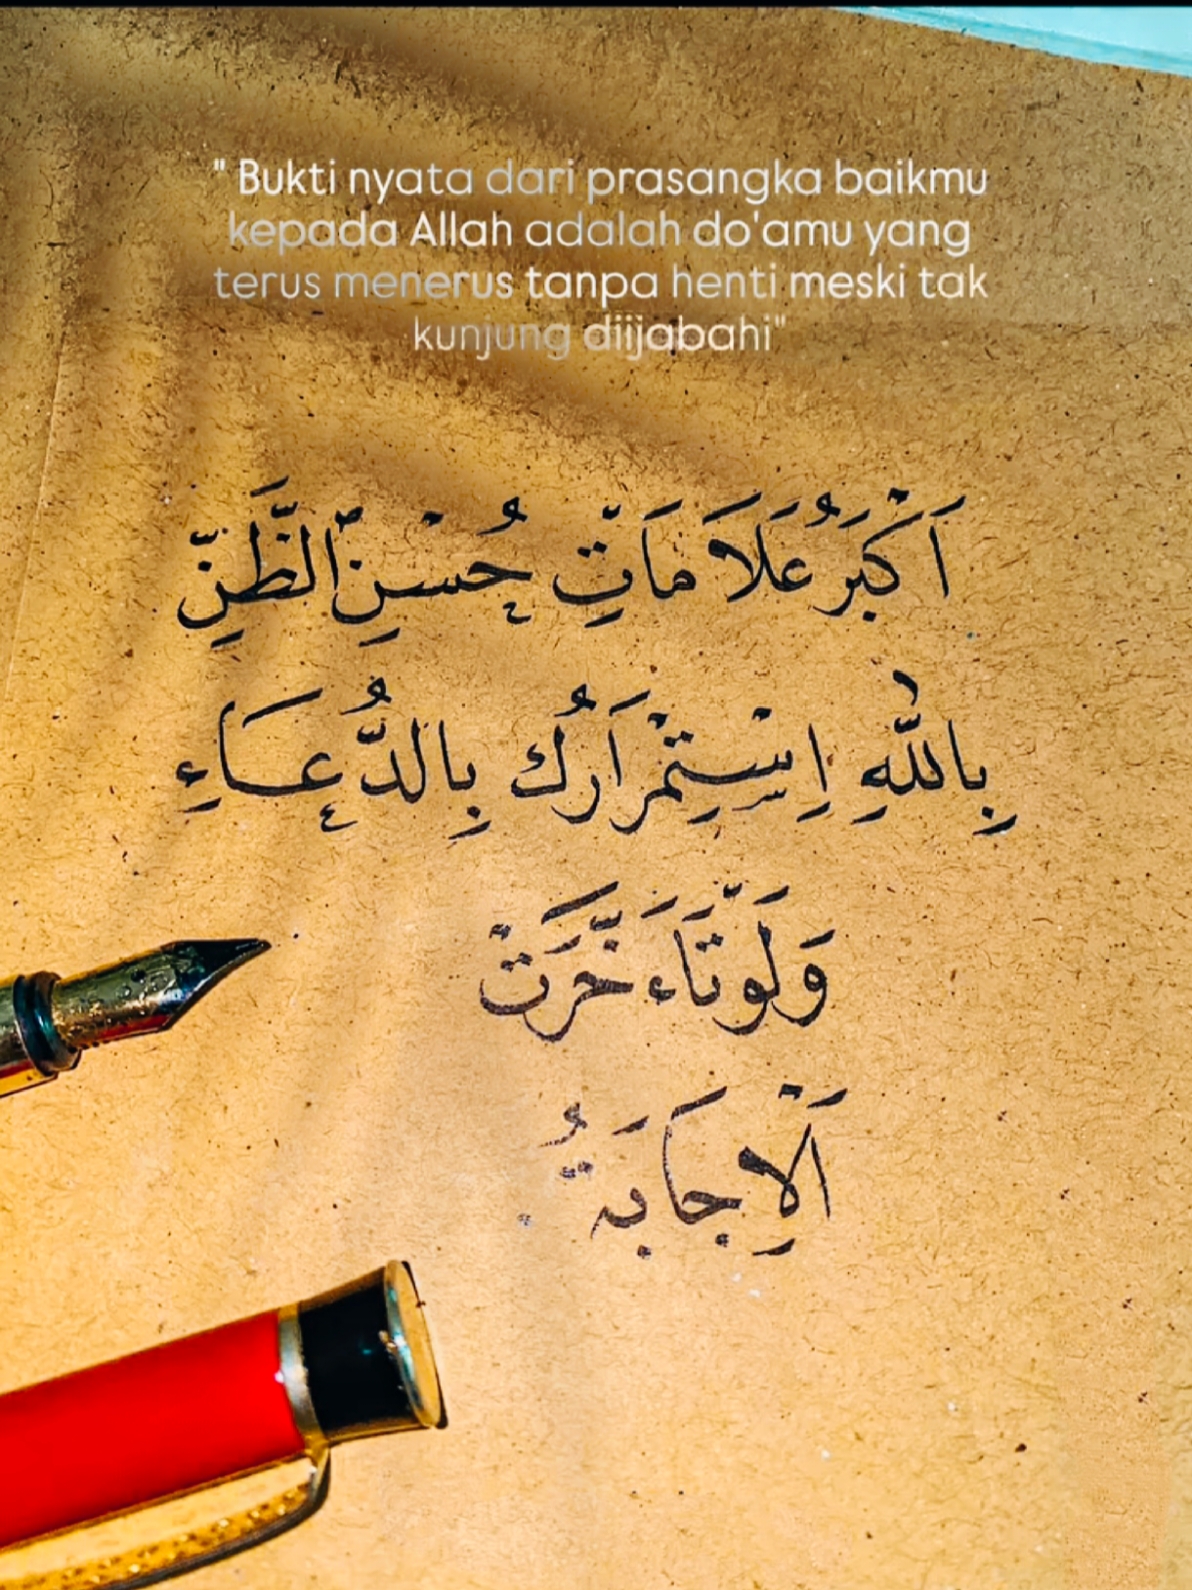 " Bukti nyata dari prasangka baikmu
kepada Allah adalah do'amu yang
terus menerus tanpa henti meski tak
kunjung diijabahi"
اَكْبَرُ عَلَامَاتِ حُسْنِ الظَّنِّ
بِاللهِ اِسْتِمْرَارُك بِالدُّعَاءِ
وَلَو تَّاَءخَّرَتْ
اَلْاِجَابَةُ .